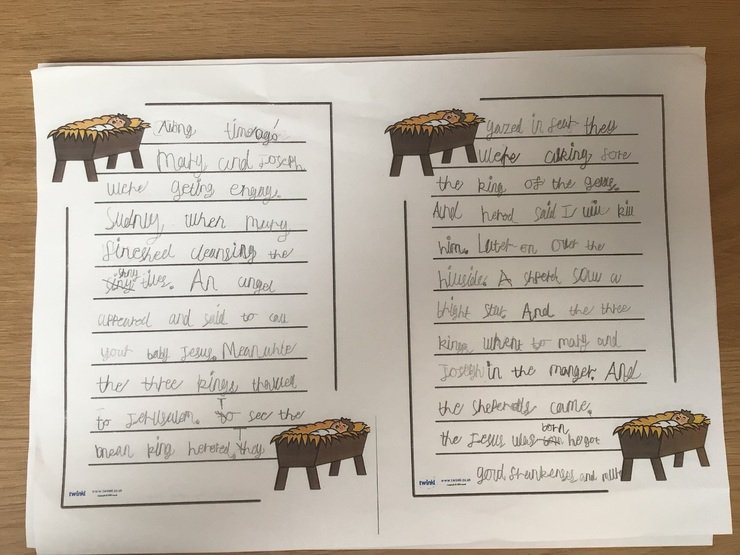 timeago
Mary and Joseph
were geting engay.
Sudnly when mary
fineshed cleansing the
shiny tiles. An angel
appeared and said to call
your baby Jesus. Meanwhile
the three kings
to Jerusalam. to see the
mean king they
twinkl www.twinkl.co.uk
gazed in fear they
were asking fore
the king of the
And herod said I will kill
him. Later on over the
hillside. A saw a
bright star. And the three
kings whent to mary and
Joseph in the manger. And
the came.
the Jesus was born he got
gold, and
twinkl www.twinkl.co.uk